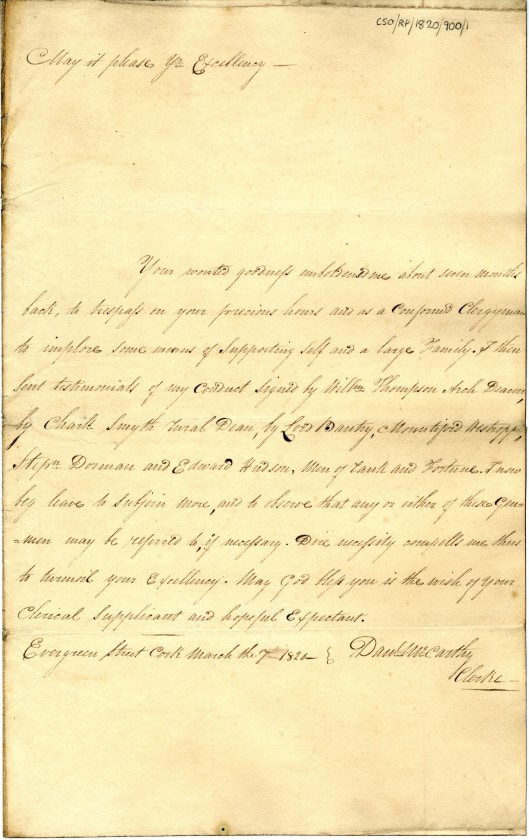 CSO/RP/1820/900/1
May it please Yr. Excellency —
Your wonted goodness emboldened me about seven months
back, to trespass on your precious hours and as a Conformed Clergyman
to implore some means of Supporting self and a large Family. I then
sent testimonials of my Conduct signed by Willm. Thompson Arch Deacon,
by Charls. Smyth Rural Dean, by Lord Bantry, Mountiford
Stepn. Dorman and Edward Hudson, Men of Rank and Fortune. I now
beg leave to subjoin more, and to observe that any or either of these Gen-
-men may be referred to, if necessary. Dire necessity compells me thus
to turmoil your Excellency. May God bless you is the wish of your
Clerical Supplicant and hopeful Expectant.
Evergreen Street Cork March the 7th 1820 — } Danl. McCarthy
Clerke —